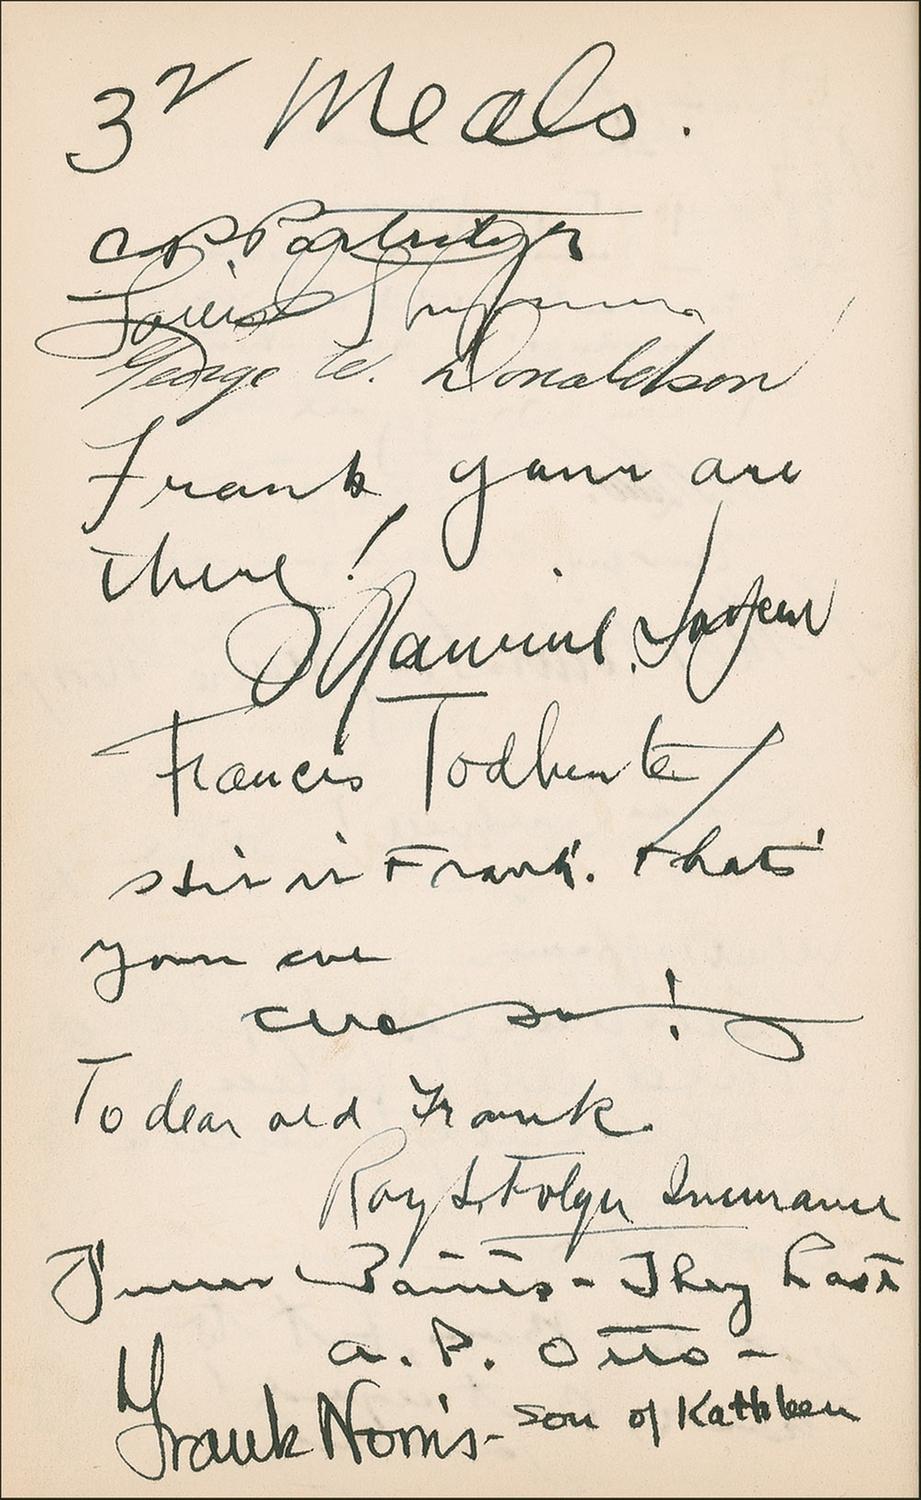 3² Meals.
C P Partridge
Louis
George W. Donaldson
Frank, your are
there!
Maurine
Francis Todhunter
stir it Frank. that's
your
To dear old Frank.
Ray L. Folger Insurance
Paints - They Last
A. P. Otto -
Frank Norris - son of Kathleen